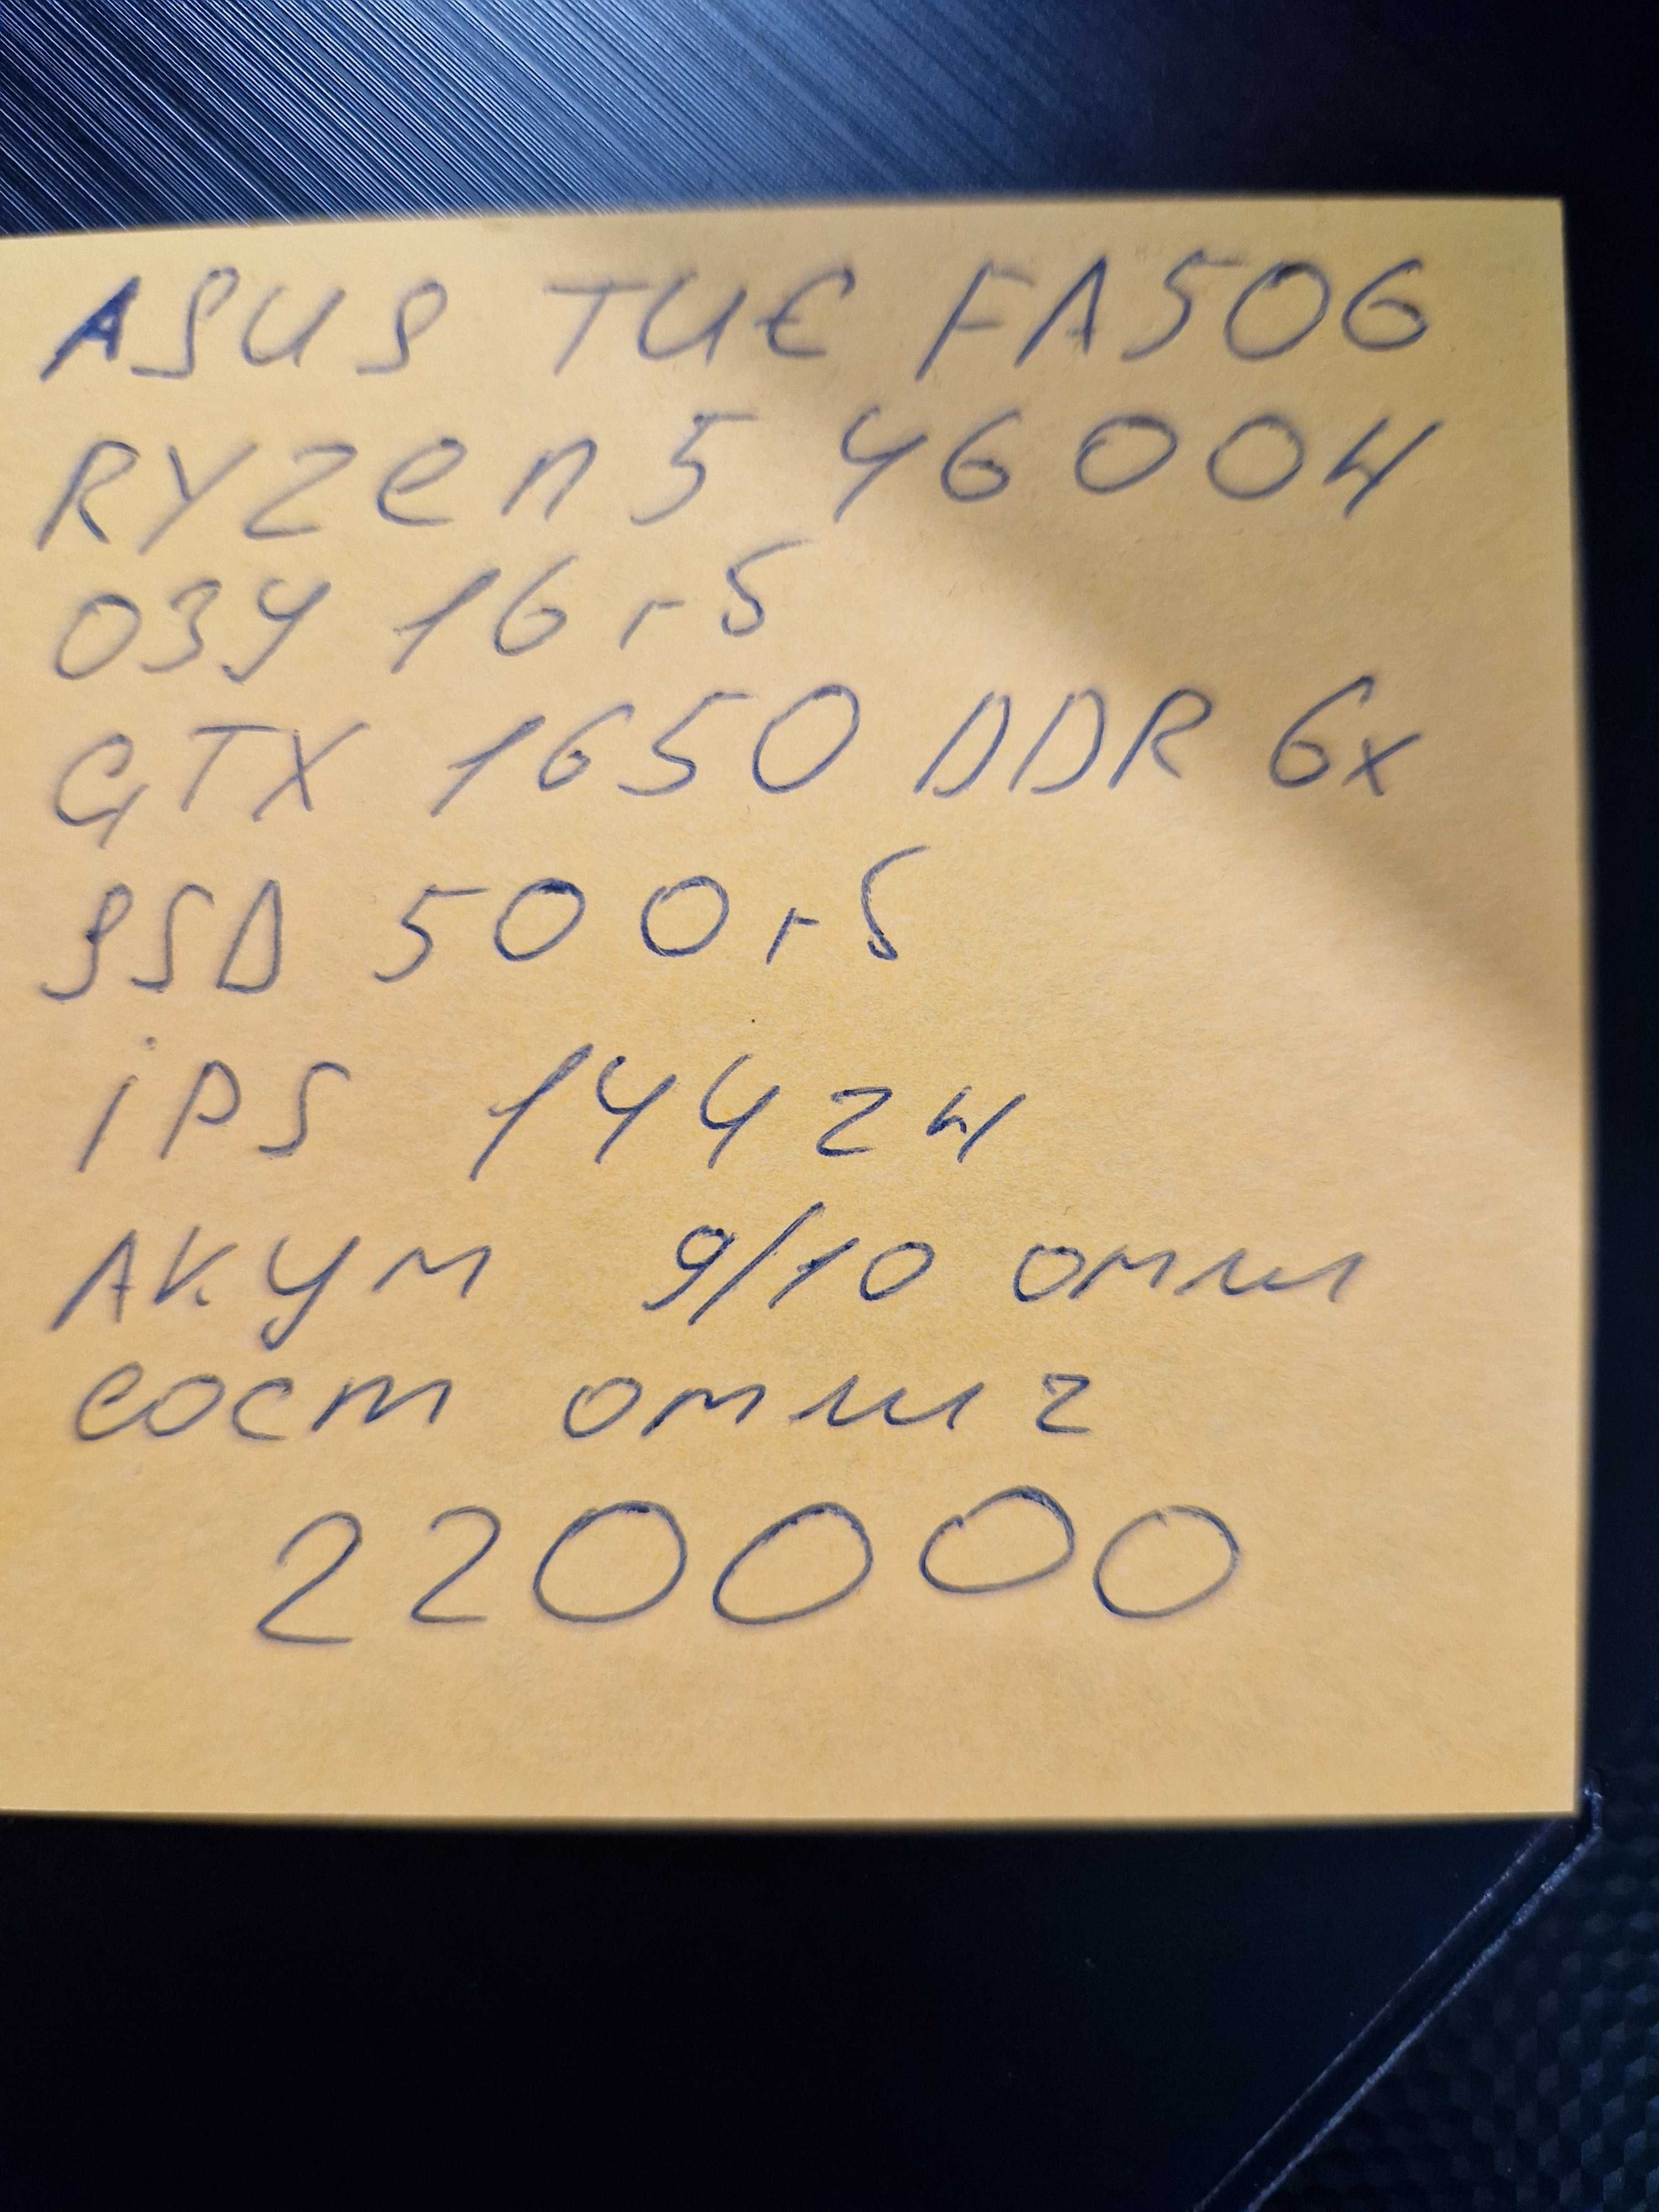 ASUS TUF FA506
RYZen 5 4600H
ОЗУ 16 гб
GTX 1650 DDR 6x
SSD 500 гб
iPS 144 гц
АКУМ 9/10 отл
сост отл 2
220000